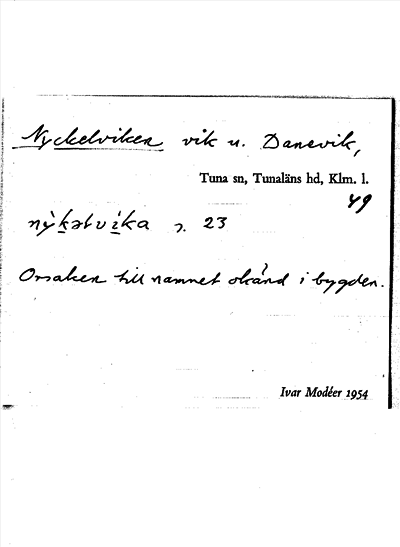 Nyckelviken vik u. Danevik,
Tuna sn, Tunaläns hd, Klm. l.
49
nỳkəlvìka s. 23
Orsaken till namnet okänd i bygden.
Ivar Modéer 1954